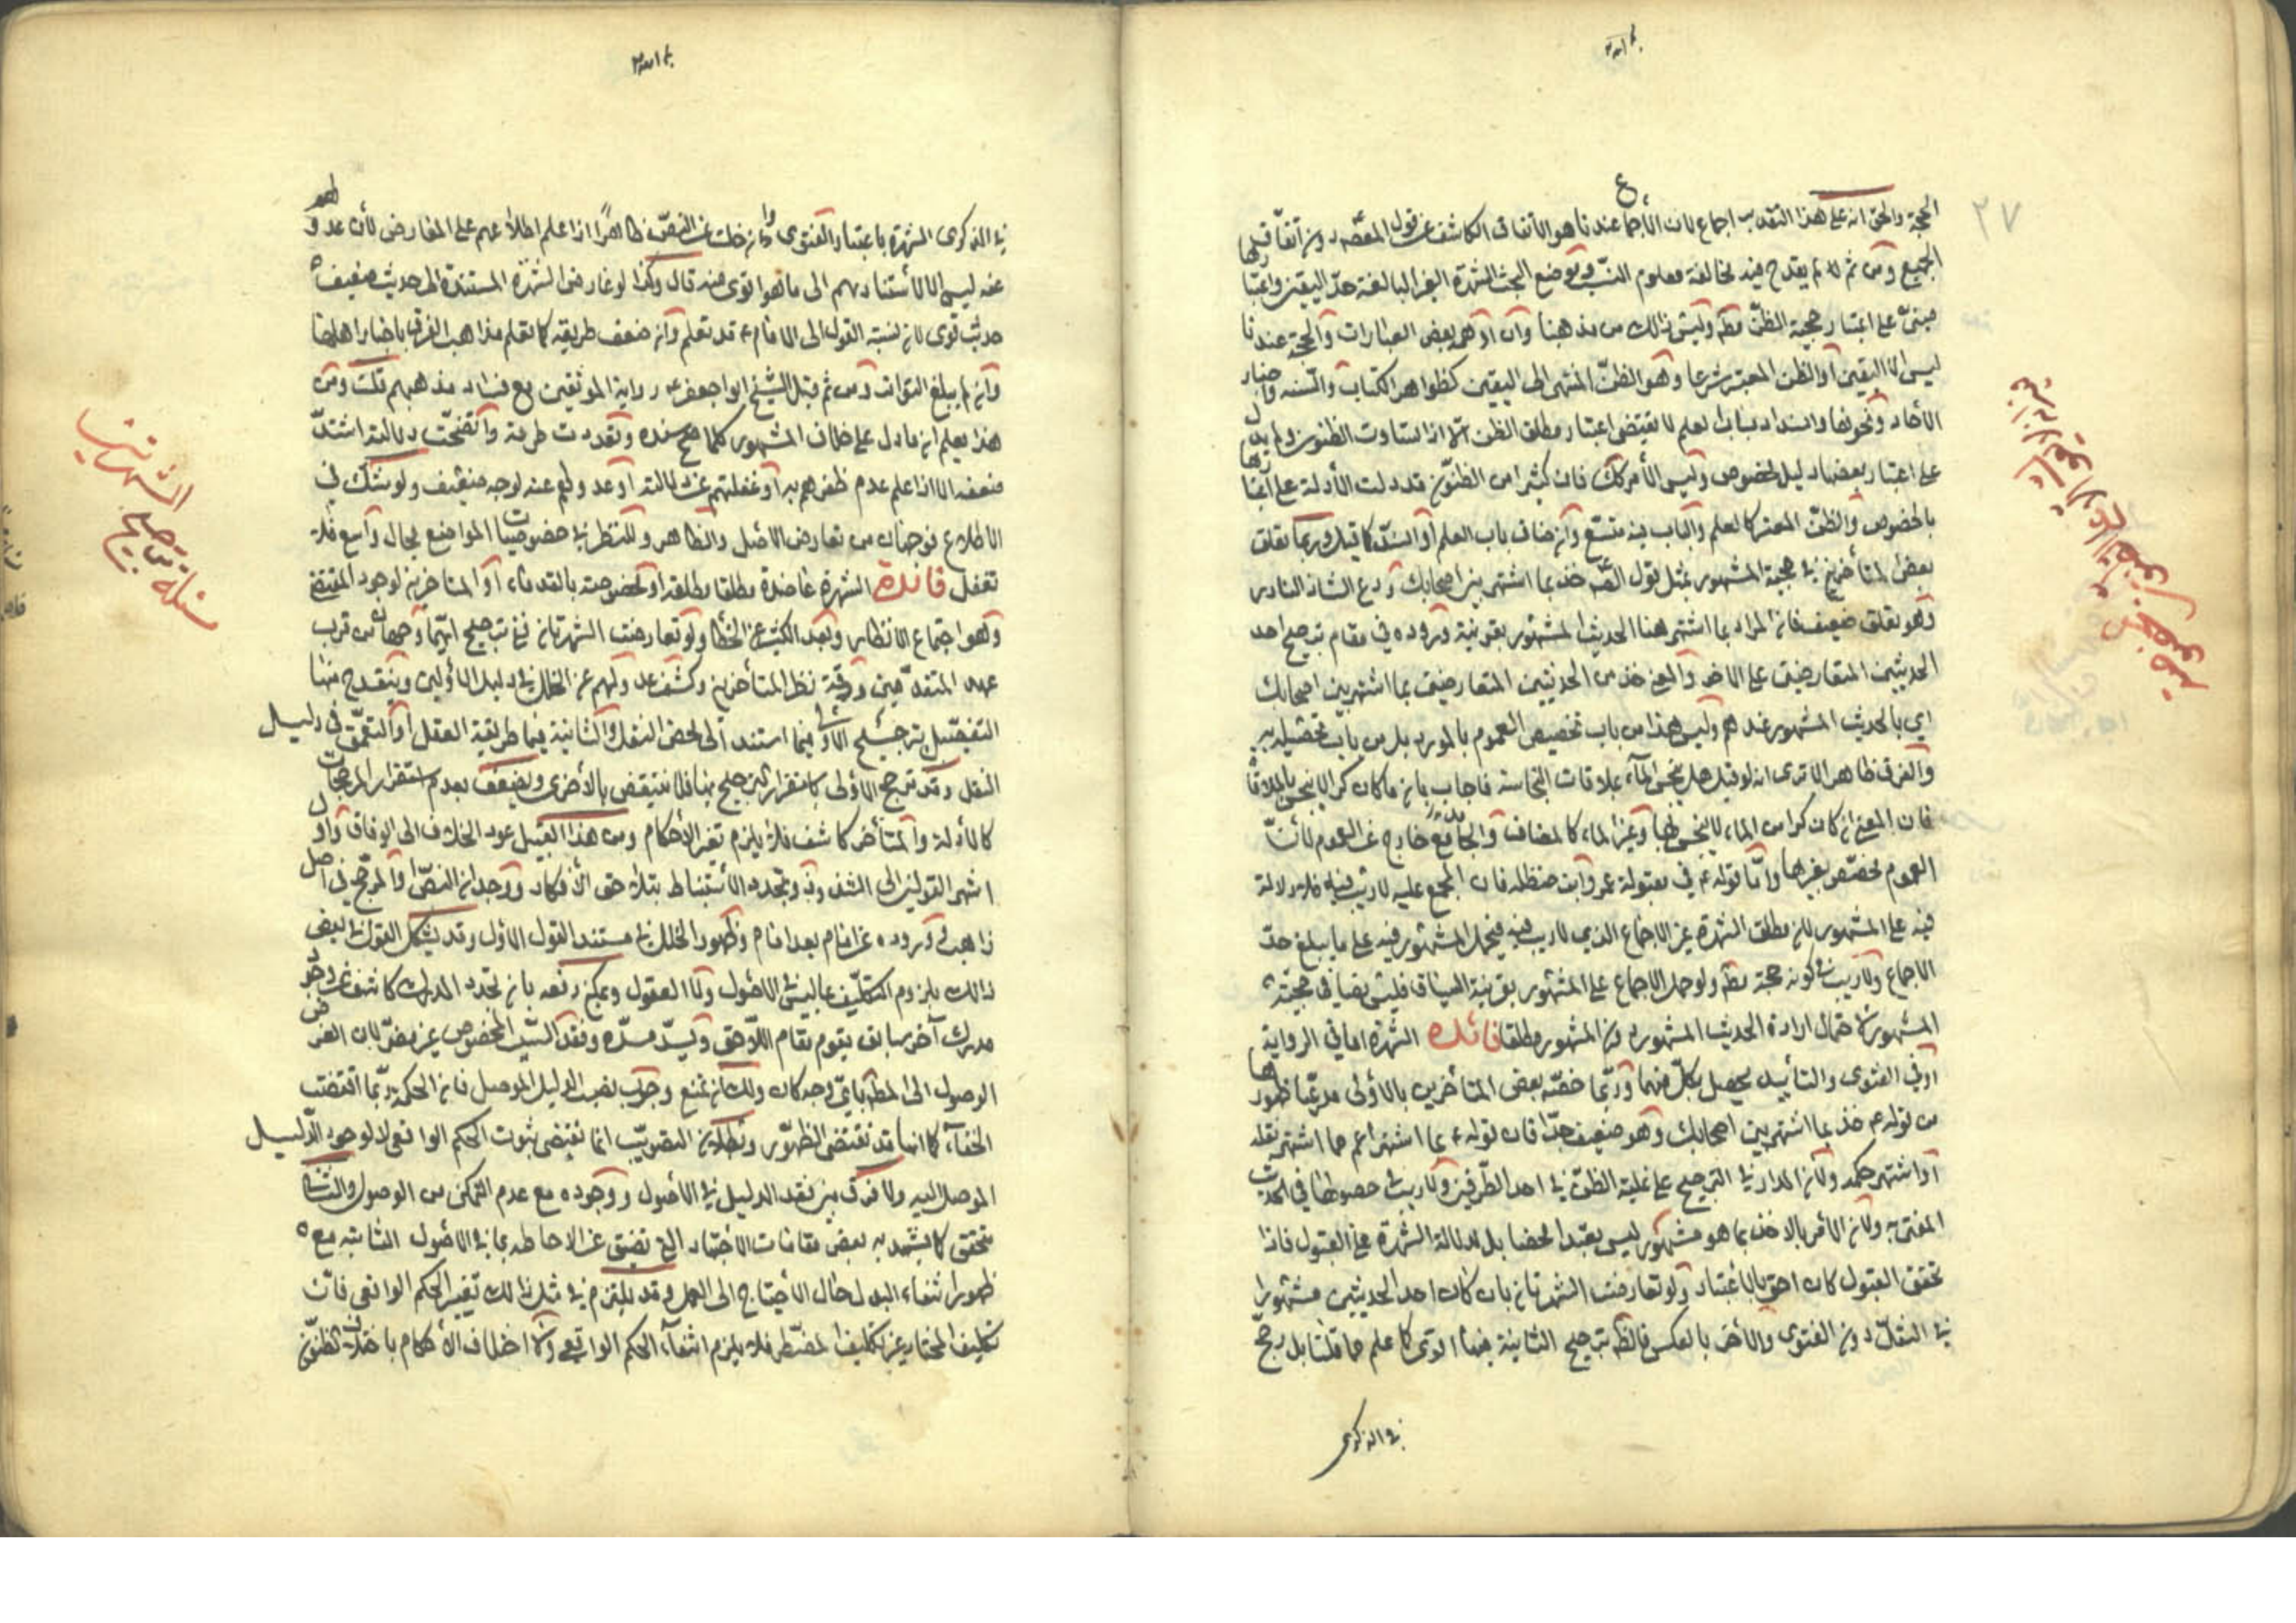 ٢٧
الحجة والحق انه على هذا التقدير اجماع لان الأجماع عندنا هو الاتفاق الكاشف عن قول المعصوم دون اتفاق
الجميع ومن ثم لم يقدح فيه مخالفة معلوم النسب وموضع البحث الشهرة الغير البالغة حد اليقين
مبنى على اعتبار حجية الظن مطه وليس ذلك من مذهبنا وان اوهمه بعض العبارات والحجة عندنا
ليس الا اليقين او الظن المعتبر شرعا وهو الظن المنتهى الى اليقين كظواهر الكتاب والسنه واخبار
الأحاد ونحوها وانسداد باب العلم لا يقتضى اعتبار مطلق الظن الا اذا تساوت الظنون ولم يدل
على اعتبار بعضها دليل لخصوص وليس الأمر كك فان كثيرا من الظنون قد دلت الأدلة على
بالخصوص والظن المعتبر كالعلم والباب فيه متسع وان ضاق باب العلم او انسد كما قيل وربما تعلق
بعض المتأخرين في حجية المشهور بمثل قول الصه خذ بما اشتهر بين اصحابك ودع الشاذ النادر
وهو تعلق ضعيف فان المراد بما اشتهر هنا الحديث المشهور بقرينة وروده في مقام ترجيح احد
الحديثين المتعارضين على الاخر والمعنى خذ من الحديثين المتعارضين بما اشتهر بين اصحابك
اي بالحديث المشهور عندهم وليس هذا من باب تخصيص العموم بالمورد بل من باب
والفرق ظاهر الا ترى انه لو قيل هل ينجس الماء بملاقات النجاسة فاجاب بان ما كان كرا لا ينجس بالملاقاة
فان المعنى ان كان كرا من الماء لا ينجس بها وغير الماء كالمضاف والجامع خارج عن العموم
العموم مخصص بغيرها واما قوله ع في مقبولة عمر وابن حنظله فان المجمع عليه لا ريب فيه فلا دلالة
فيه على المشهور لان مطلق الشهرة غير الاجماع الذي لا ريب فيه فيحمل المشهور فيه على ما يبلغ حد
الاجماع ولا ريب في كونه حجة مطه ولو حمل الاجماع على المشهور بقرينة السياق فليس نصا في حجية
المشهور لاحتمال ارادة الحديث المشهور دون المشهور مطلقا فائده الشهرة اما في الرواية
او في الفتوى والتأييد يحصل بكل منهما وربما خصه بعض المتأخرين بالاولى مدعيا ظهورها
من قوله ع خذ بما اشتهر بين اصحابك وهو ضعيف جدا فان قوله ع بما اشتهر اعم مما اشتهر نقله
او اشتهر حكمه ولان المدار في الترجيح على غلبة الظن في احد الطرفين ولا ريب في حصولها في الحديث
المفتى به ولان الأمر بالاخذ بما هو مشهور ليس تعبدا محضا بل لدلالة الشهرة على القبول فاذا
تحقق القبول كان احق بالاعتبار ولو تعارضت الشهرتان بان كان احد الحديثين مشهورا
في النقل دون الفتوى والأخر بالعكس فالظه ترجيح الثانية فيها اقوى كما علم مما قلنا بل رجح
في الذكرى
في الذكرى الشهرة باعتبار الفتوى وان خلت عن النص ظاهرا اذا علم اطلاعهم على المعارض لأن عدولهم
عنه ليس الا لاستنادهم الى ما هو اقوى منه قال وكذا لو عارض الشهرة المستندة الى حديث ضعيف
حديث قوى لان نسبة القول الى الامام ع قد تعلم وان ضعف طريقه كما تعلم مذاهب الفرق باخبار اهلها
وان لم يبلغ التواتر ومن ثم قبل الشيخ ابو جعفر ره رواية الموثقين مع فساد مذهبهم قلت ومن
هذا يعلم ان ما دل على خلاف المشهور كلما صح سنده وتعددت طرقه واتضحت دلالته اشتد
ضعفه الا اذا علم عدم ظفرهم به او غفلتهم عن دلالته او عدولهم عنه لوجه ضعيف ولو شك في
الاطلاع فوجهان من تعارض الأصل والظاهر وللنظر في خصوصيات المواضع مجال واسع فلا
تغفل فائدة الشهرة عاضدة مطلقا مطلقة او مخصوصة بالقدماء او المتاخرين لوجود المقتضى
وهو اجتماع الانظار وبعد الكثير عن الخطأ ولو تعارضت الشهرتان ففي ترجيح ايهما وجهان من قرب
عهد المتقدمين ودقة نظر المتأخرين وكشف عدولهم عن الخلل في دليل الأولين وينقدح منها
التفصيل بترجيح الأولى فيما استند الى محض النقل والثانية فيما طريقه العقل او التعمق في دليل
النقل وقد ترجح الاولى باستقرار الترجيح بها فلا ينتقض بالأخرى ويضعف بعدم استقرار المرجحات
كالأدلة والمتأخر كاشف فلا يلزم تغير الأحكام ومن هذا القبيل عود الخلاف الى الوفاق
اشهر القولين الى الشذوذ وتجدد الاستنباط بتلاحق الأفكار ووجدان النص او المرجح في اصل
ذاهب او وروده عن امام بعد امام وظهور الخلل في مستند القول الاول وقد يشكل القول في بعض
ذلك بلزوم التكليف بما ليس في الأصول ولا العقول ويمكن دفعه بان تجدد المدرك كاشف عن وجود
مدرك آخر سابق يقوم مقام اللاحق ويسد مسده وفقد السبب المخصوص غير مضر لان الغرض
الوصول الى المطه باي وجه كان ولك ان تمنع وجوب نصب الدليل الموصل فان الحكمة ربما اقتضت
الخفاء كما انها قد تقتضى الظهور وبطلان التصويب انما يقتضى ثبوت الحكم الواقعى لا لوجود الدليل
الموصل اليه ولا فرق بين فقد الدليل في الاصول ووجوده مع عدم التمكن من الوصول والثانى
متحقق كما يشهد به بعض مقامات الاجتهاد التي تضيق عن الاحاطه بما في الاصول الثابته مع
ظهور انتفاء البدل حال الاحتياج الى العمل وقد يلتزم في مثل ذلك تغير الحكم الواقعى فان
تكليف المختار غير تكليف المضطر فلا يلزم انتفاء الحكم الواقعى ولا اختلاف الأحكام باختلاف الظنون
مسئلة ترجيح الشهرتين